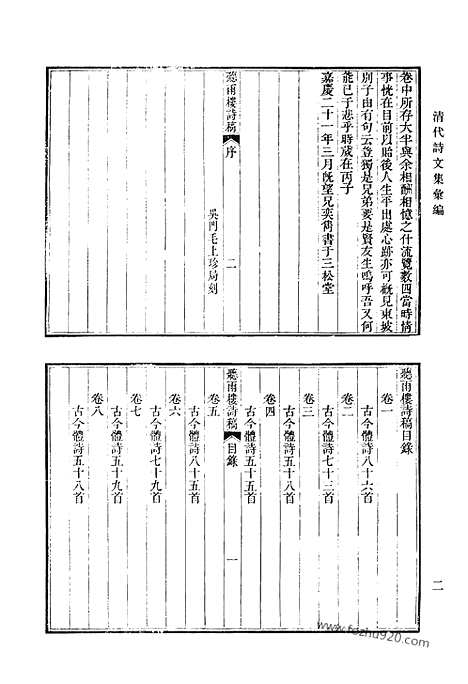 清代詩文集彙編
卷中所存大半與余相酬相憶之什流覽數四當時情
事恍在目前以貽後人生平出處心跡亦可槪見東坡
別子由有句云豈獨是兄弟要是賢友生嗚呼吾又何
能已于悲乎時歲在丙子
嘉慶二十一年三月旣望兄奕雋書于三松堂
聽雨樓詩稿 序 二
吳門毛上珍局刻
聽雨樓詩稿目錄
卷一
古今體詩八十六首
卷二
古今體詩七十三首
卷三
古今體詩五十八首
卷四
古今體詩五十五首
聽雨樓詩稿 目錄 一
卷五
古今體詩八十五首
卷六
古今體詩七十九首
卷七
古今體詩五十九首
卷八
古今體詩五十八首
二
www.fozhu920.com